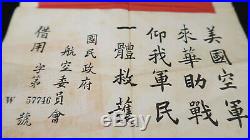 美國空軍
來華助戰
仰我軍民
一體救護
國民政府
航空委員會
借用字第
W 57746
號